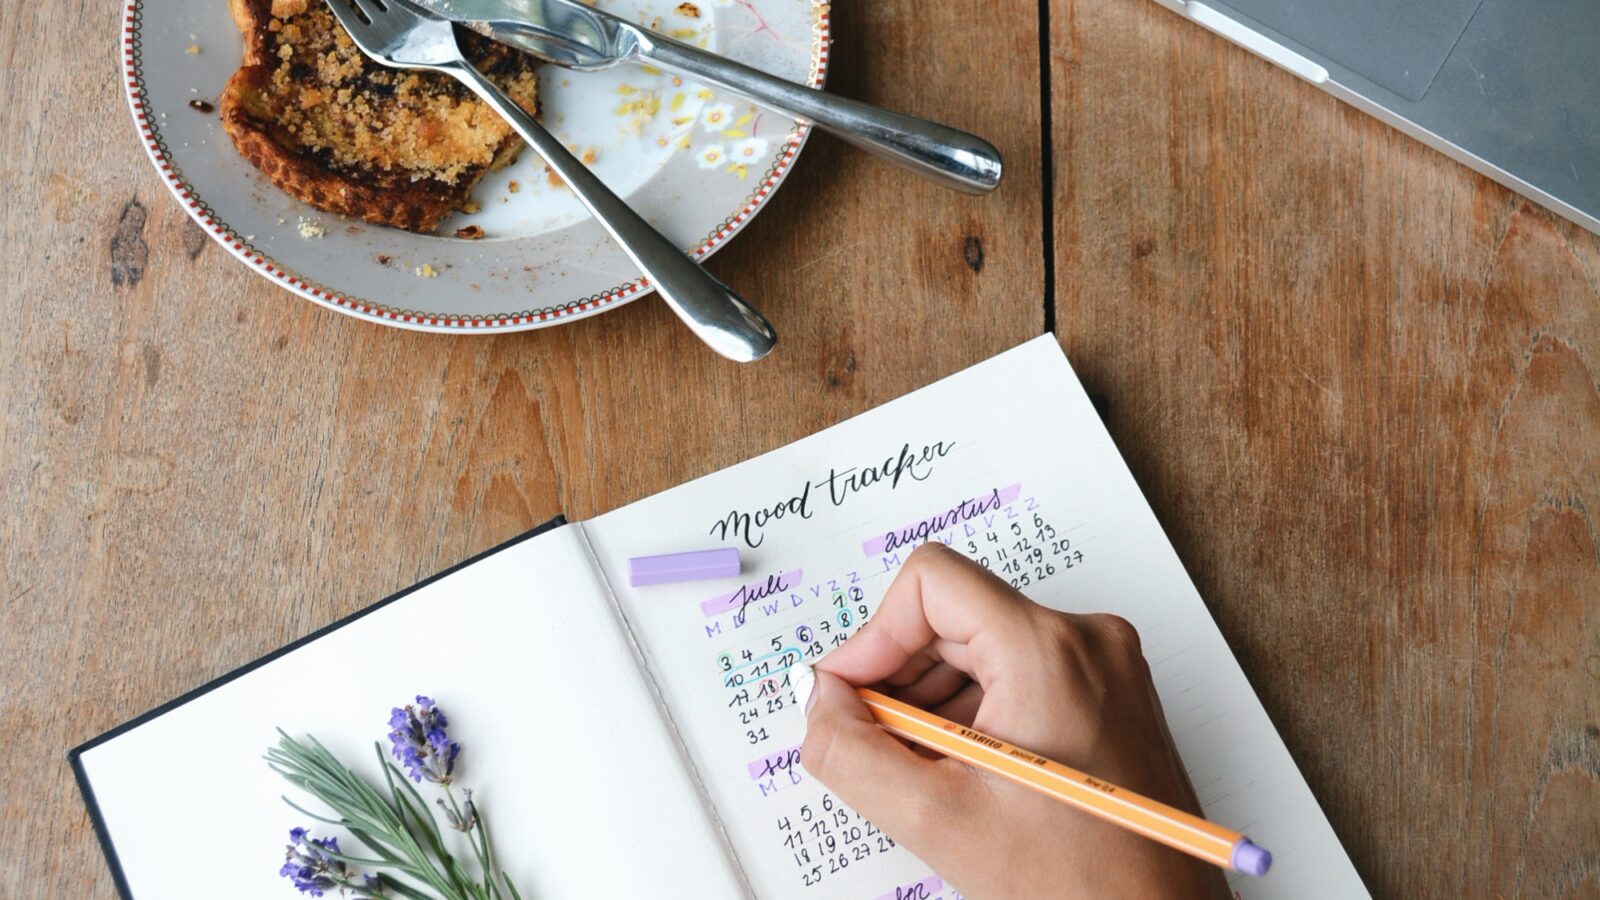 mood tracker
juli
M D W D V Z Z
1 2
3 4 5 6 7 8 9
10 11 12 13 14
17 18
24 25
31
augustus
M W D V Z Z
3 4 5 6
10 11 12 13
18 19 20
25 26 27
sep
M D
4 5 6
11 12 13
18 19 20 21
25 26 27 28
ber
STABILO point 88 fine 0,4